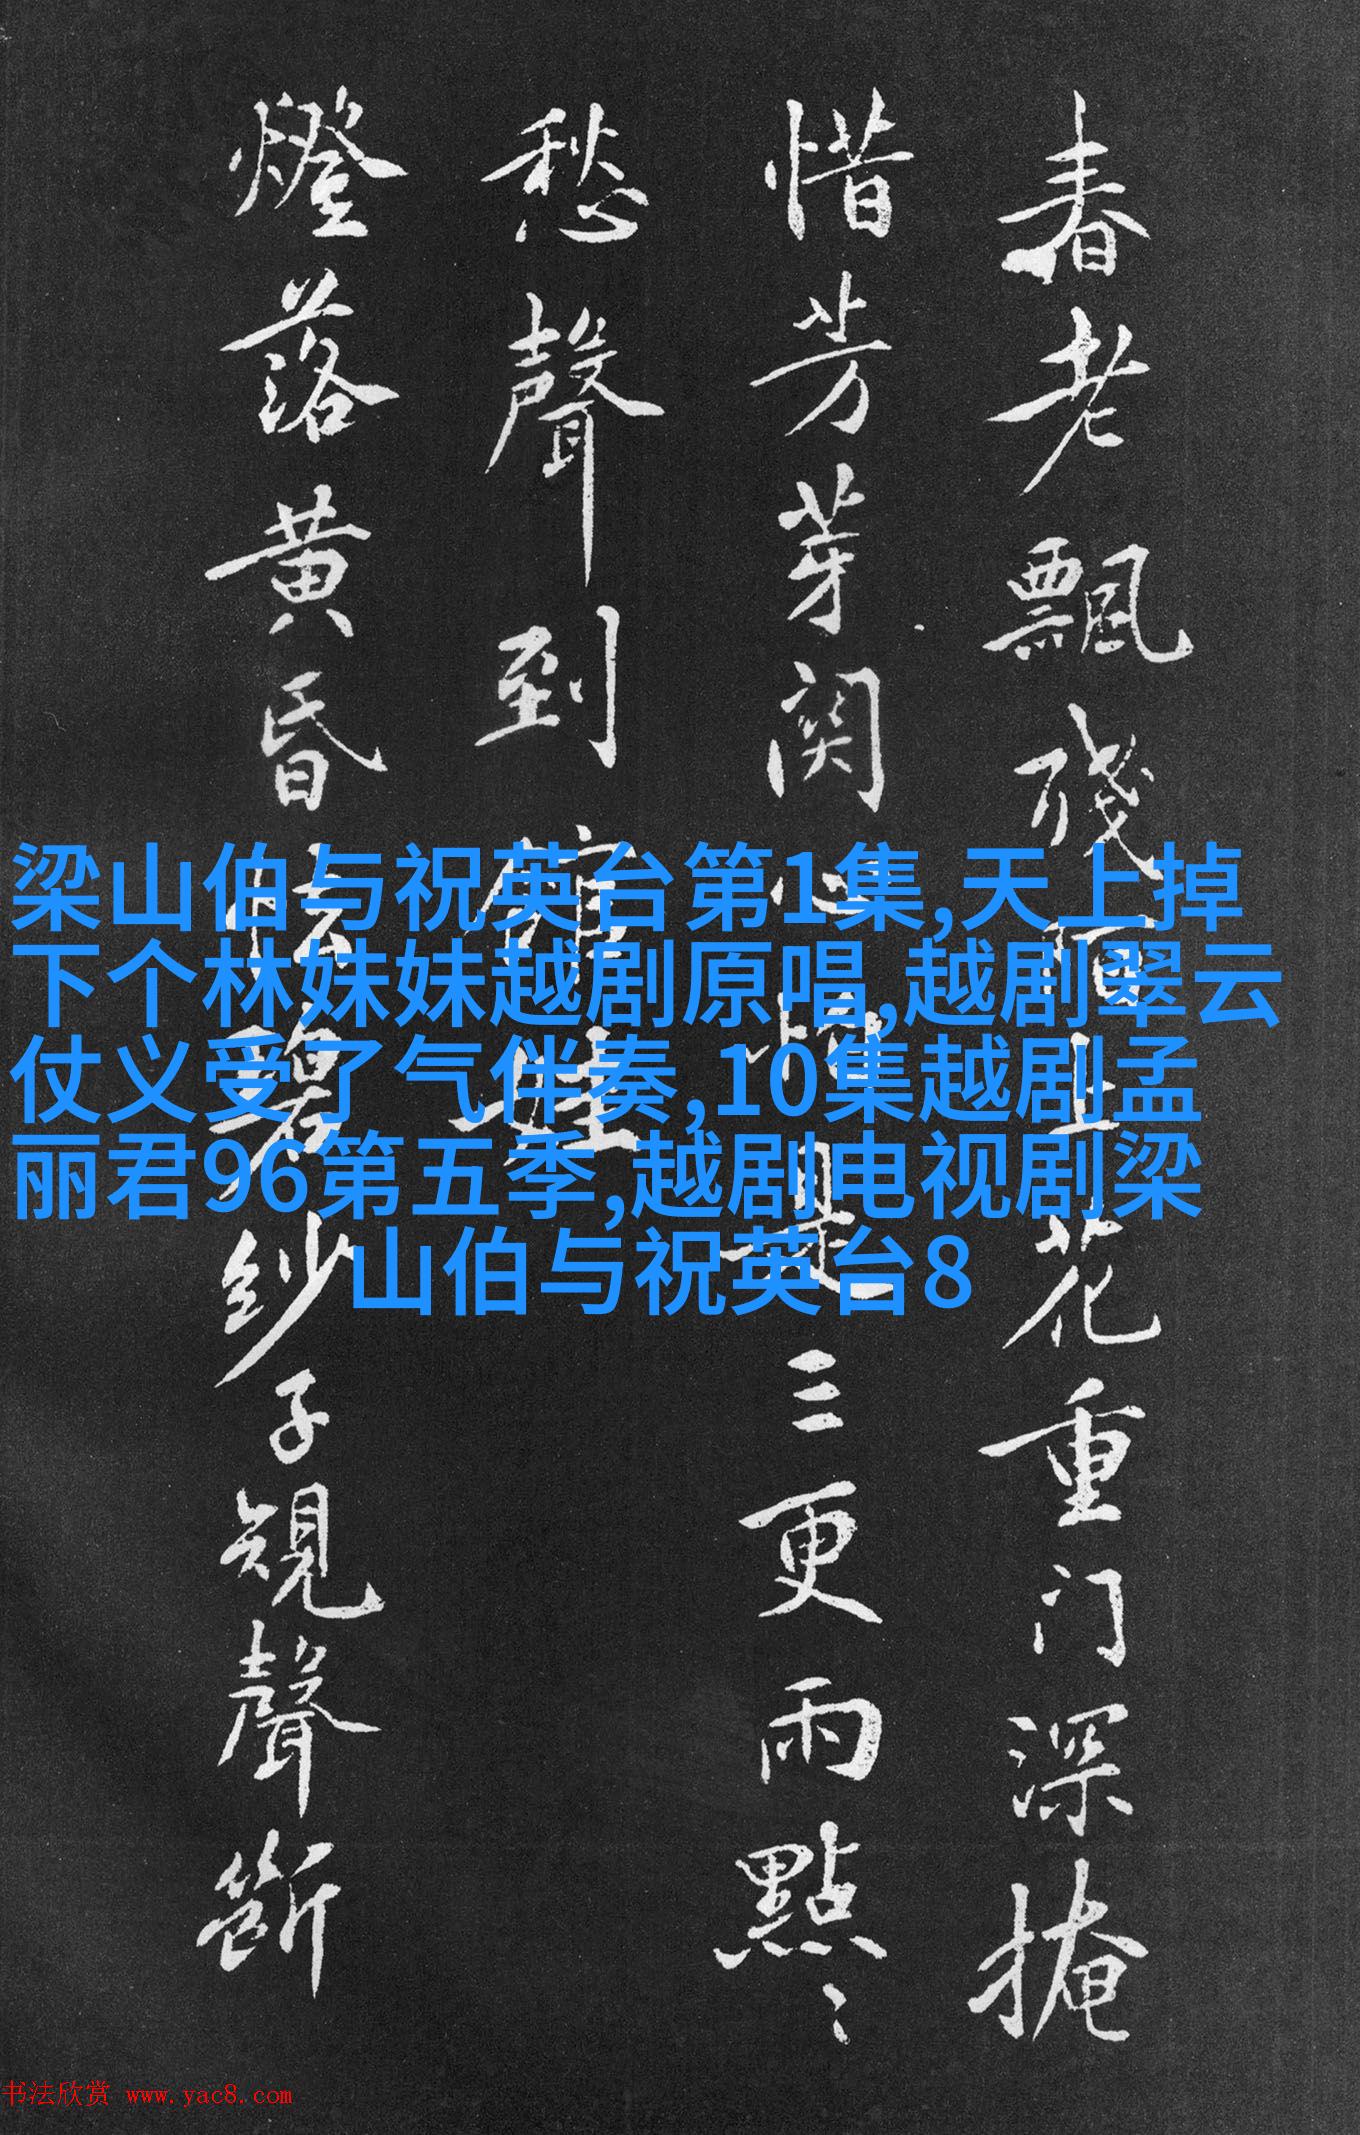 春老飄殘陌上花重门深掩
惜芳芽関心怕是三更雨點〻
愁聲到館娃
燈落黄昏怯碧紗子規聲断
梁山伯与祝英台第1集,天上掉
下个林妹妹越剧原唱,越剧翠云
仗义受了气伴奏,10集越剧孟
丽君96第五季,越剧电视剧梁
山伯与祝英台8
书法欣赏 www.yac8.com